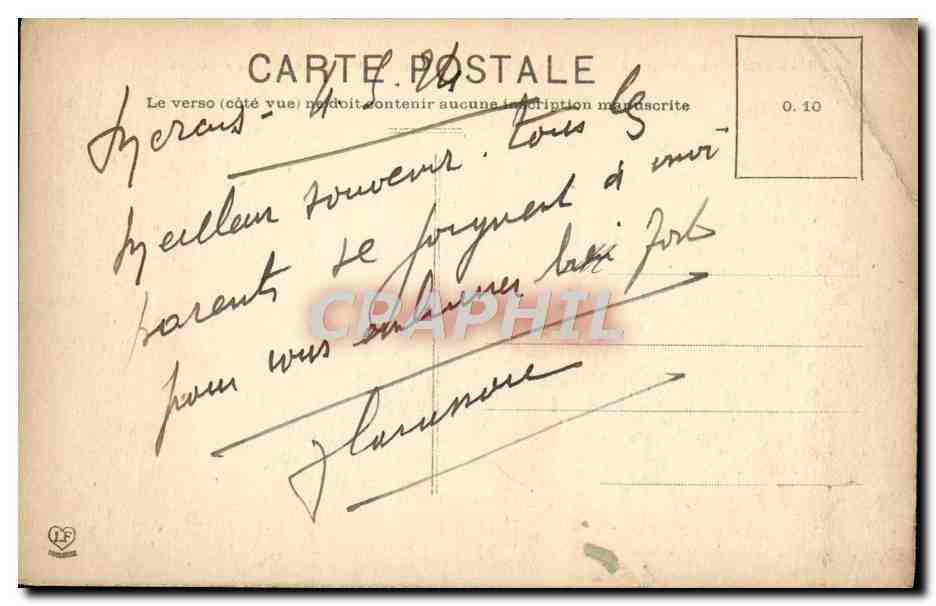 CARTE POSTALE
Le verso (côté vue) ne doit contenir aucune inscription manuscrite
0.10
4.5.24
Meilleur souvenir. tous les
parents se joignent à moi
pour vous embrasser bien fort
CRAPHIL
LF